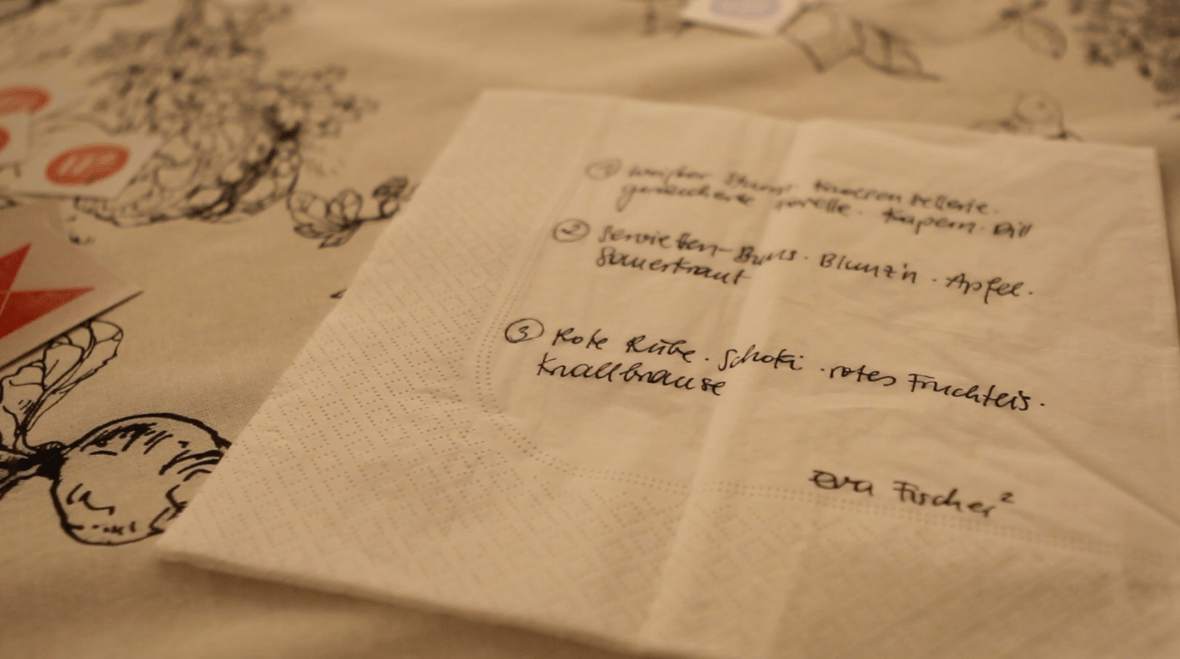 ① weißer · Knollensellerie.
geräucherte Forelle · Kapern · Dill
② Servietten-Buns · Blunz'n · Apfel ·
Sauerkraut
③ Rote Rübe · Schoki · rotes Fruchteis ·
Knallbrause
eva Fischer²